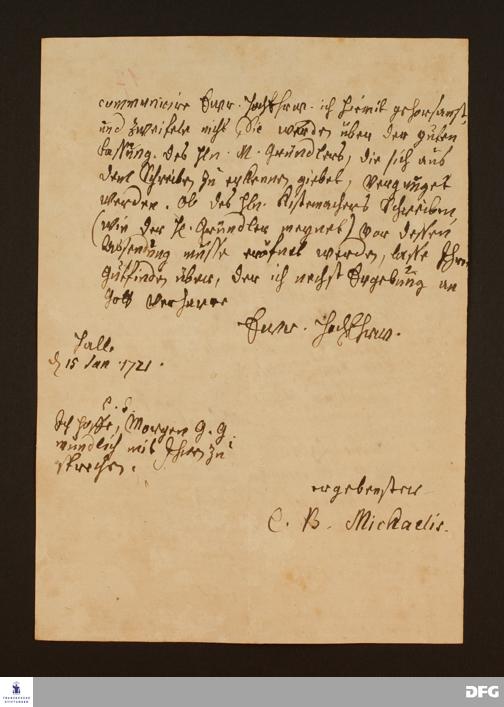 communicire Euer. HochEhrw. ich hiemit gehorsamst,
und zweifele nicht Sie werden über der guten
Fassung des Hln. M. Gründlers, die sich aus
dem Schreiben zu erkennen giebet, vergnüget
werden. Ob des Hln. Kistemachers Schreiben,
(wie der H. Gründler meynet) vor dessen
Absendung müsse eröfnet werden, lasse Ihrem
Gutfinden über, der ich nechst Ergebung an
Gott verharre
Euer. HochEhrw.
Halle
d 15 Jan. 1721.
P. S.
Ich hoffe, Morgen g. G
mündlich mit Ihnen zu
sprechen.
ergebenster
C. B. Michaelis.
FRANCKESCHE
STIFTUNGEN
DFG